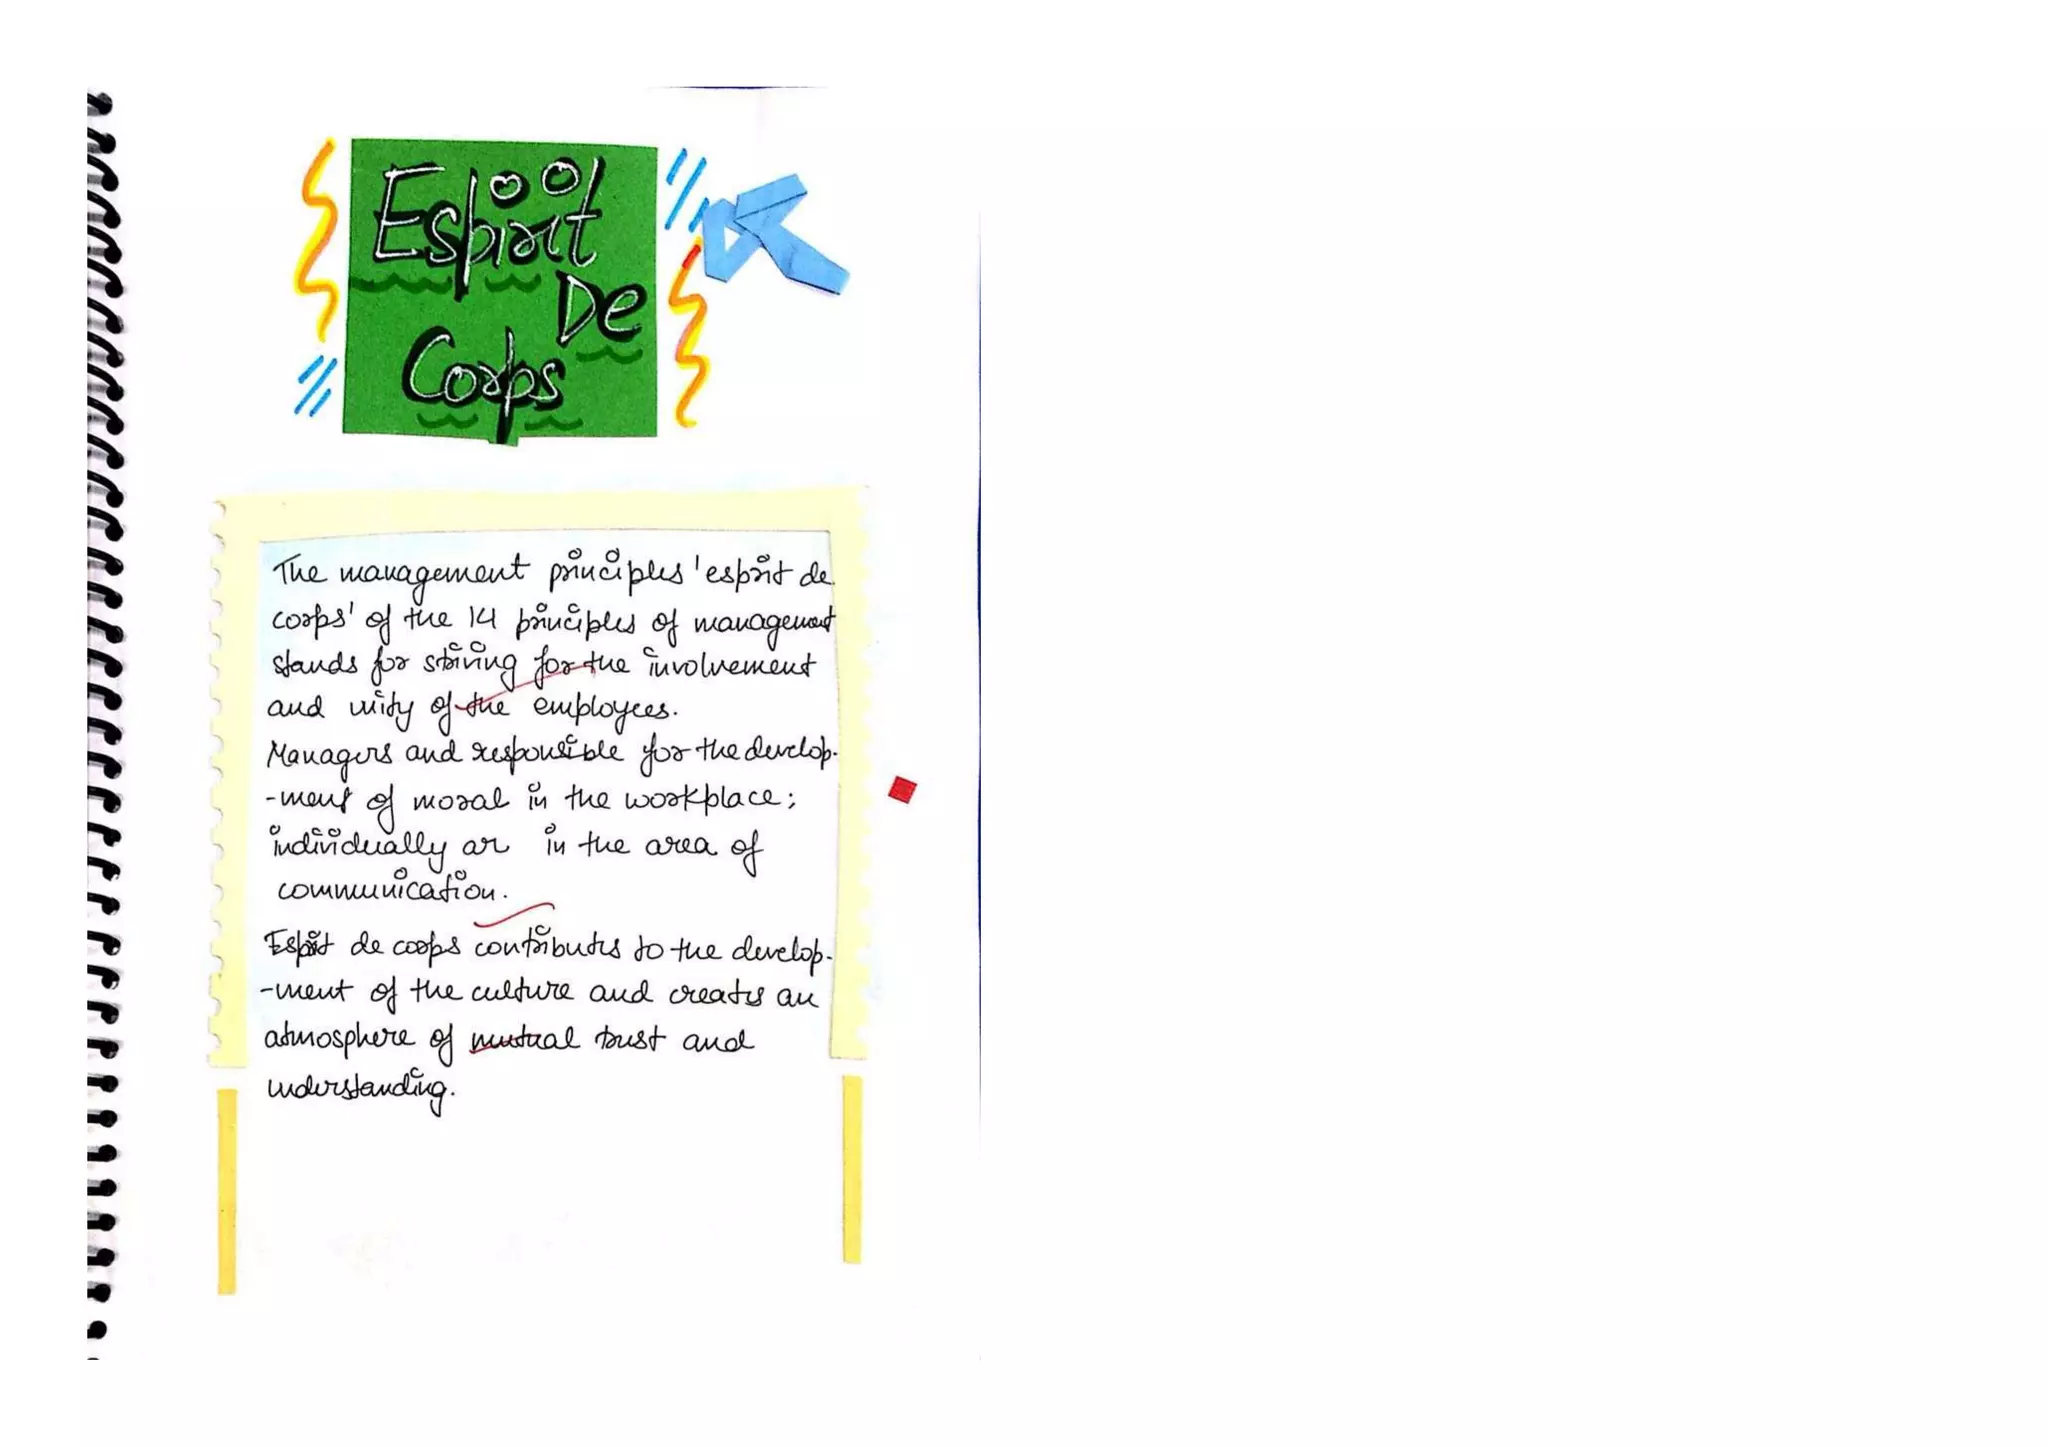 Espirit
De
Corps
The management principles 'esprit de
corps' of the 14 principles of management
stands for striving for the involvement
and unity of the employees.
Managers and responsible for the develop-
-ment of moral in the workplace;
individually or in the area of
communication.
Esprit de corps contributes to the develop-
-ment of the culture and creates an
atmosphere of mutual trust and
understanding.